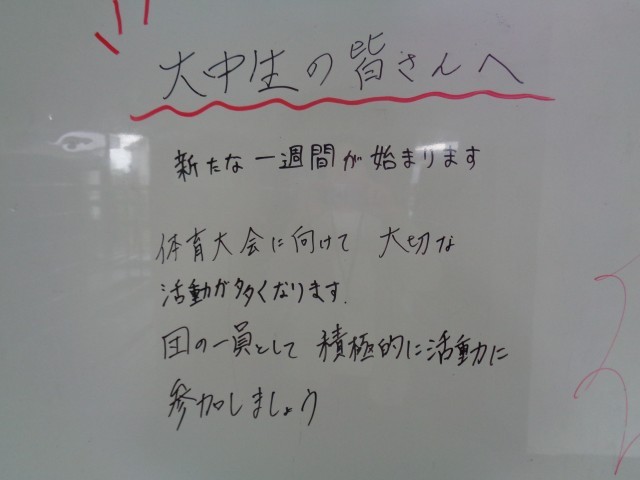 大中生の皆さんへ
新たな一週間が始まります
体育大会に向けて 大切な
活動が多くなります.
団の一員として 積極的に活動に
参加しましょう